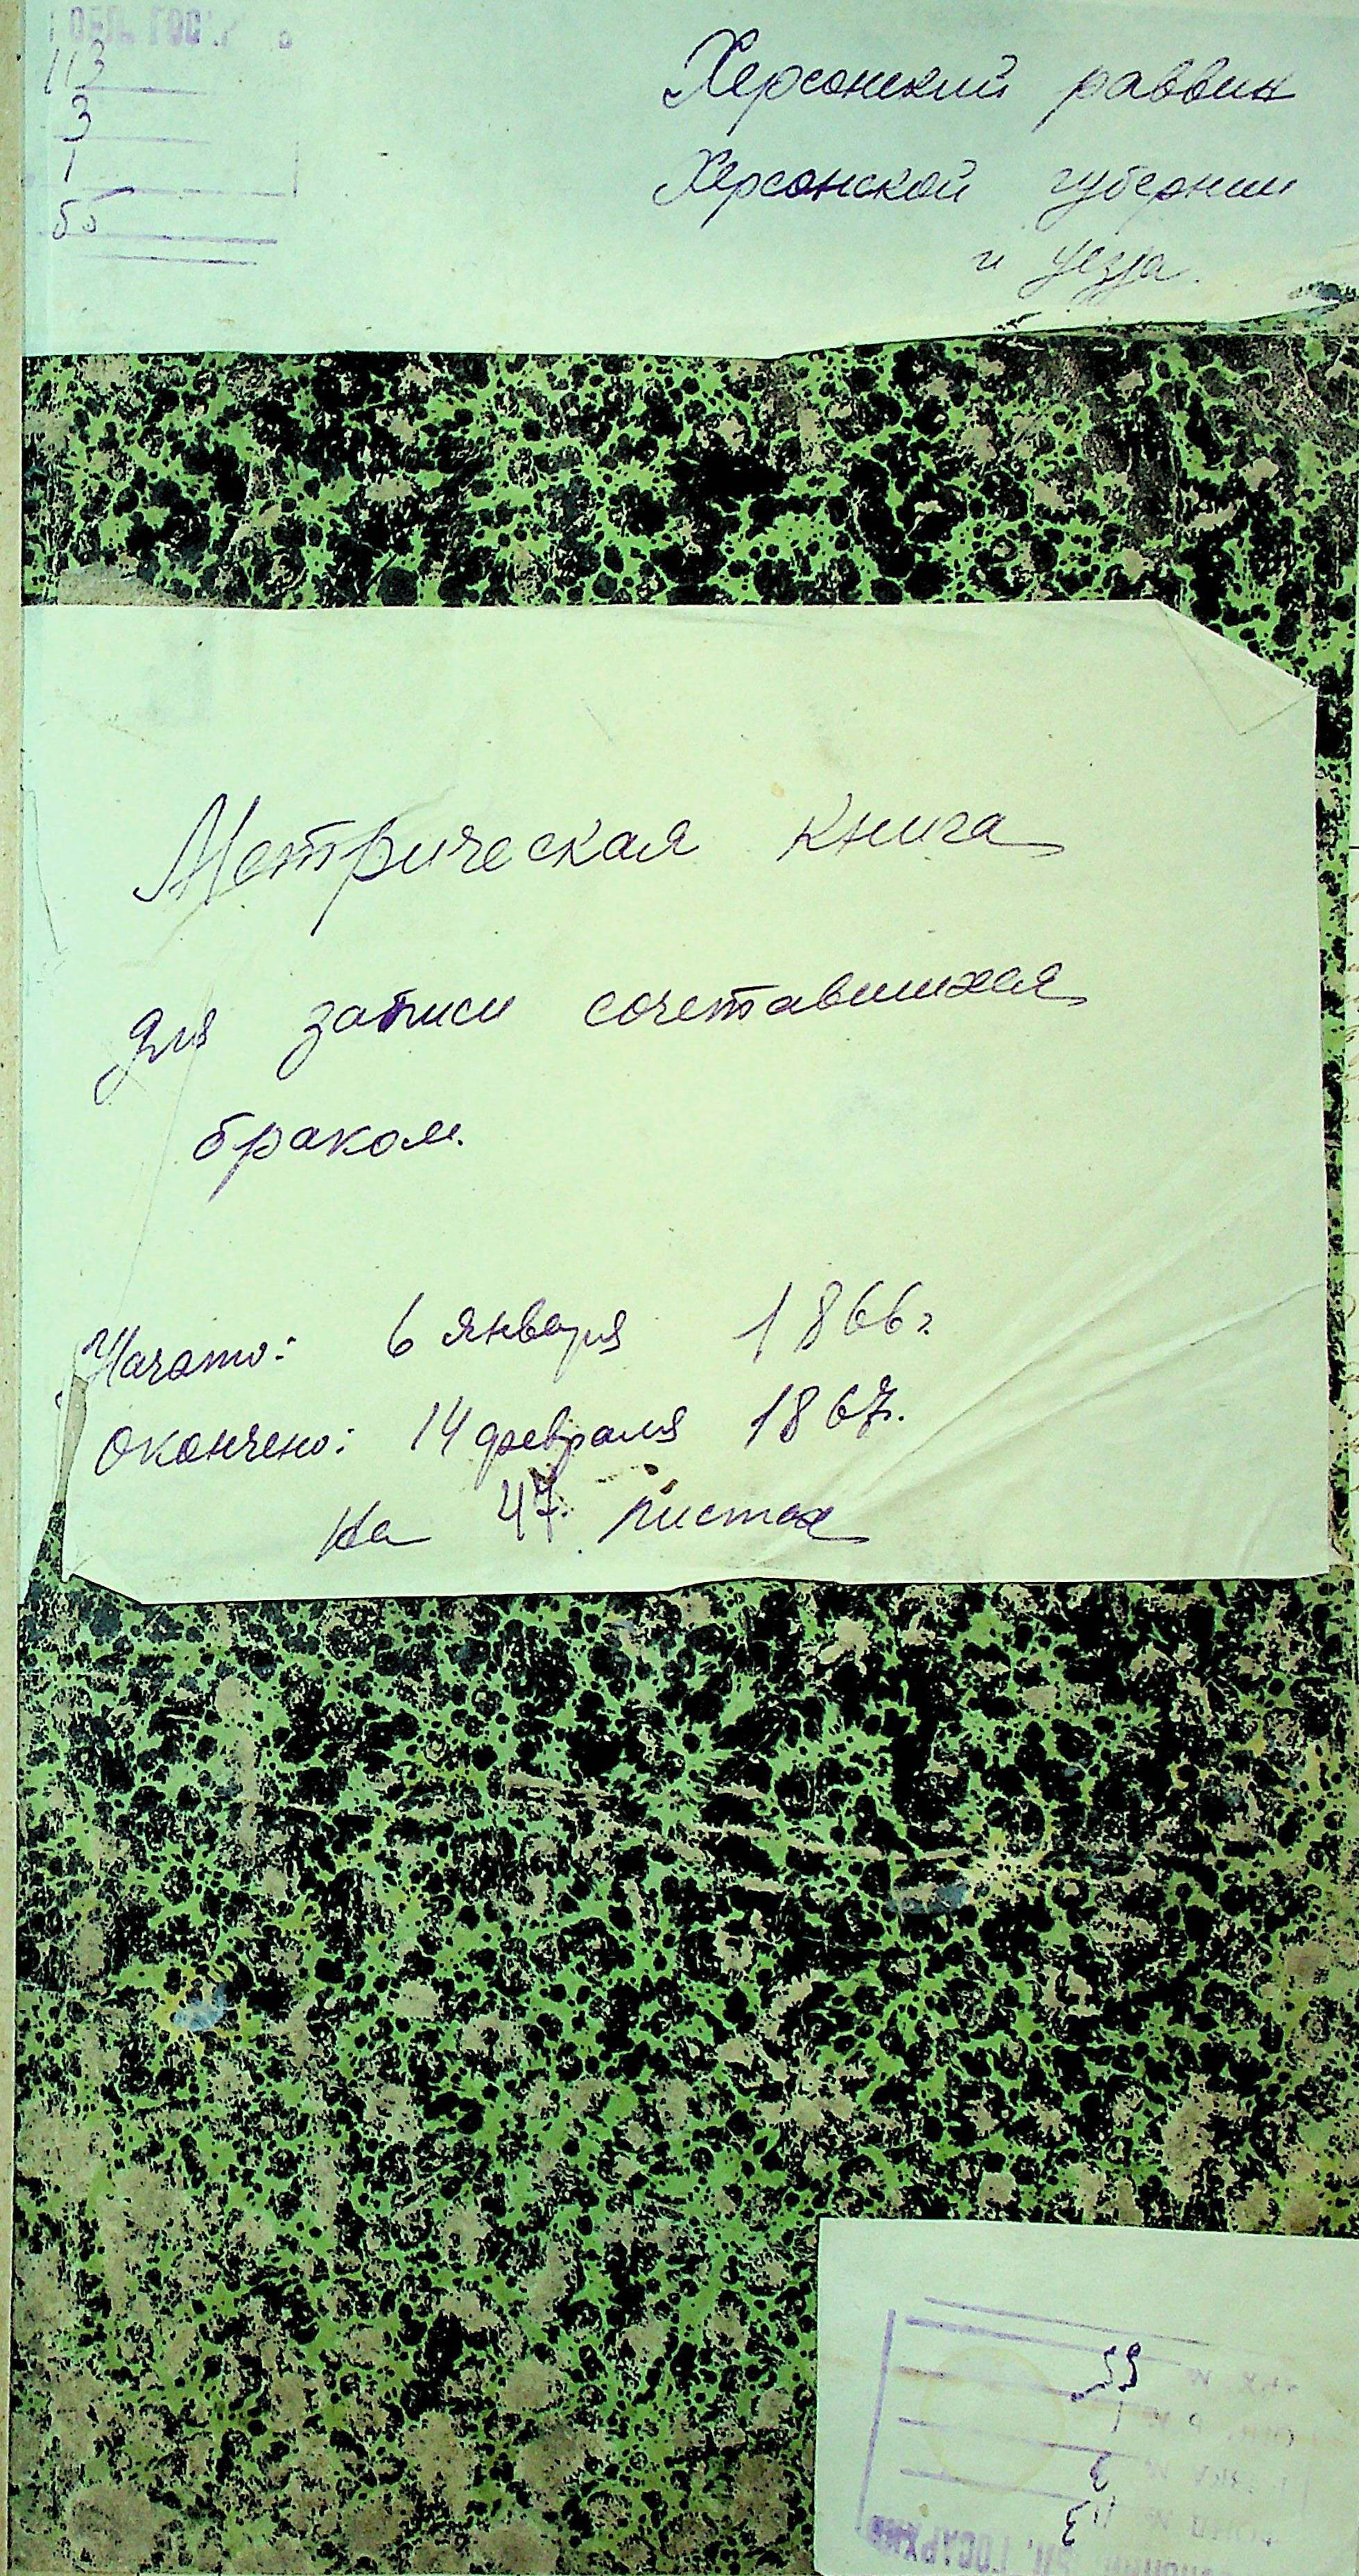 113
3
1
55
Херсонский раввин
Херсонской губернии
и уезда.
Метрическая книга
для записи сочетавшихся
браком.
Начато: 6 января 1866 г.
Окончено: 14 февраля 1867.
На 47. листах
55
1
3
113
ГОСАРХИВ